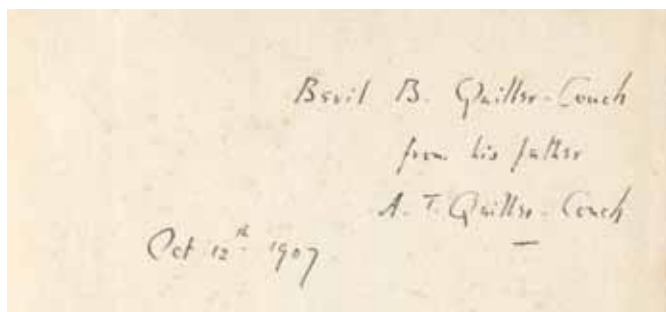 Bevil B. Quiller-Couch
from his father
A. T. Quiller-Couch
Oct 12th 1907